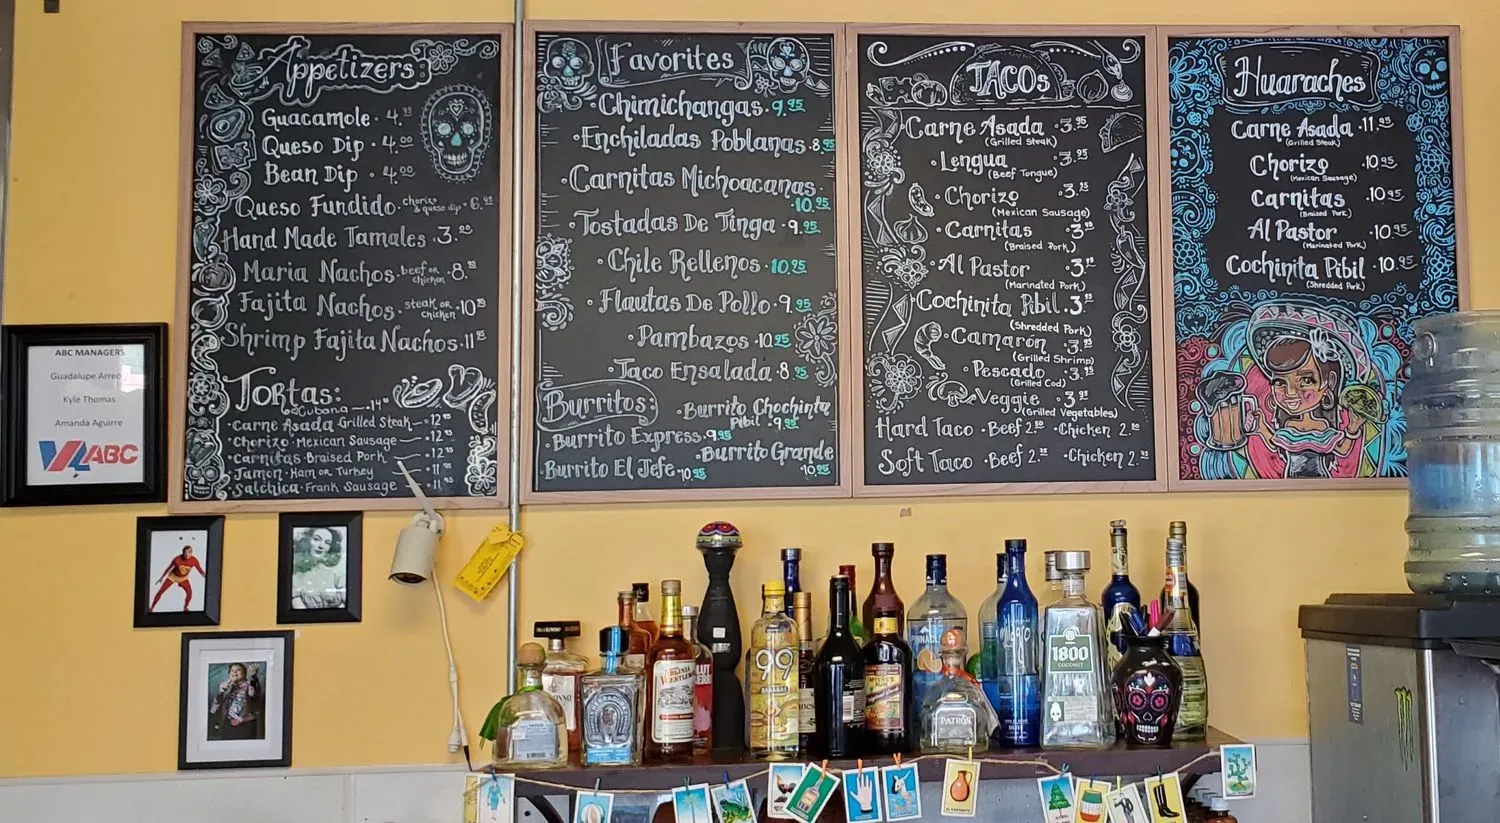 Appetizers:
Guacamole · 4.
Queso Dip · 4.00
Bean Dip · 4.00
Queso Fundido · chorizo & queso dip · 6.95
Hand Made Tamales · 3.
Maria Nachos · beef or chicken · 8.
Fajita Nachos · steak or chicken · 10
Shrimp Fajita Nachos · 11
Tortas:
Cubana
· Carne Asada Grilled Steak — 12
· Chorizo · Mexican Sausage — 12
· Carnitas · Braised Pork — 12
· Jamon · Ham or Turkey · 11
· Salchica · Frank Sausage — 11
Favorites
· Chimichangas · 9.95
· Enchiladas Poblanas · 8.95
· Carnitas Michoacanas
· 10.95
· Tostadas De Tinga · 9.95
· Chile Rellenos · 10.95
· Flautas De Pollo · 9.95
· Pambazos · 10.25
· Taco Ensalada · 8.95
Burritos:
· Burrito Chochinta
Pibil · 9.95
· Burrito Express · 9.95
· Burrito Grande
10.95
· Burrito El Jefe · 10.95
TACOs
Carne Asada · 3.95
(Grilled Steak)
· Lengua · 3.95
(Beef Tongue)
· Chorizo · 3.
(Mexican Sausage)
· Carnitas · 3.
(Braised Pork)
· Al Pastor · 3.
(Marinated Pork)
· Cochinita Pibil · 3.
(Shredded Pork)
· Camarón · 3.95
(Grilled Shrimp)
· Pescado · 3.
(Grilled Cod)
· Veggie · 3.95
(Grilled Vegetables)
Hard Taco · Beef 2. · Chicken 2.
Soft Taco · Beef 2. · Chicken 2.
Huaraches
Carne Asada · 11.95
(Grilled Steak)
Chorizo · 10.95
(Mexican Sausage)
Carnitas · 10.95
(Braised Pork)
Al Pastor · 10.95
(Marinated Pork)
Cochinita Pibil · 10.95
(Shredded Pork)
ABC MANAGERS
Guadalupe Arreo
Kyle Thomas
Amanda Aguirre
VA ABC
VIRGINIA GENTLEMAN
99
BANANAS
PINNACLE
PATRÓN
milagro
1800
COCONUT